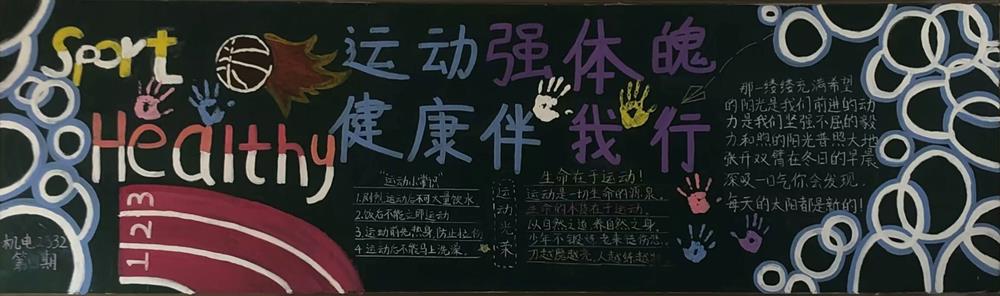 Sport
Healthy
运动强体魄
健康伴我行
123
机电2332
第 期
"运动小常识"
1.剧烈运动后不可大量饮水
2.饭后不能立即运动
3.运动前先热身,防止拉伤
4.运动后不能马上洗澡。
运动光荣
生命在于运动!
运动是一切生命的源泉。
生命的本质在于运动。
以自然之道,养自然之身。
少年不锻炼 老来徒伤悲
刀越磨越亮,人越练越
那一缕缕充满希望
的阳光是我们前进的动
力是我们坚强不屈的毅
力和煦的阳光普照大地
张开双臂在冬日的早晨
深吸一口气你会发现,
每天的太阳都是新的!